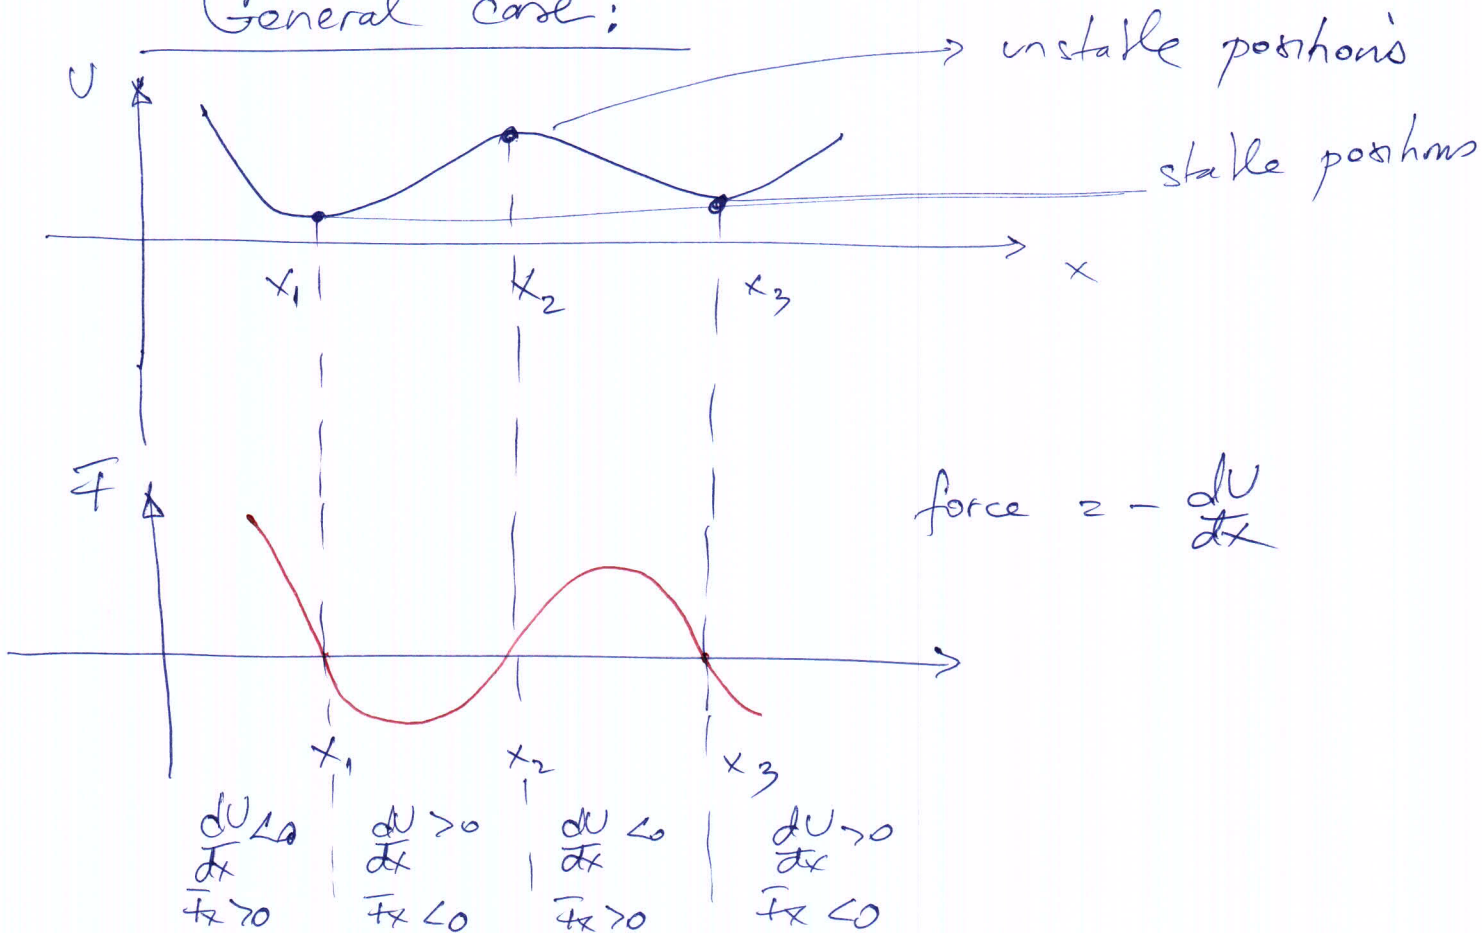 General case:
U
unstable positions
stable positions
x₁
x₂
x₃
x
F
force = - dU/dx
x₁
x₂
x₃
dU/dx <0
dU/dx >0
dU/dx <0
dU/dx >0
Fx >0
Fx <0
Fx >0
Fx <0